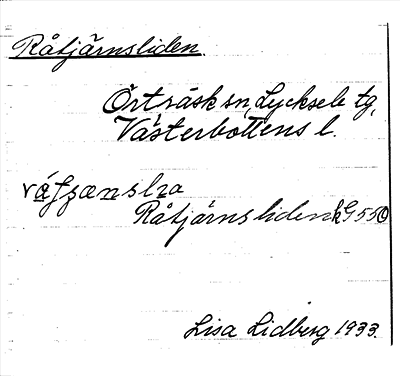 Råtjärnsliden.
Örträsk sn, Lycksele tg,
Västerbottens l.
Råtjärnsliden k G550
Lisa Lidberg 1933.